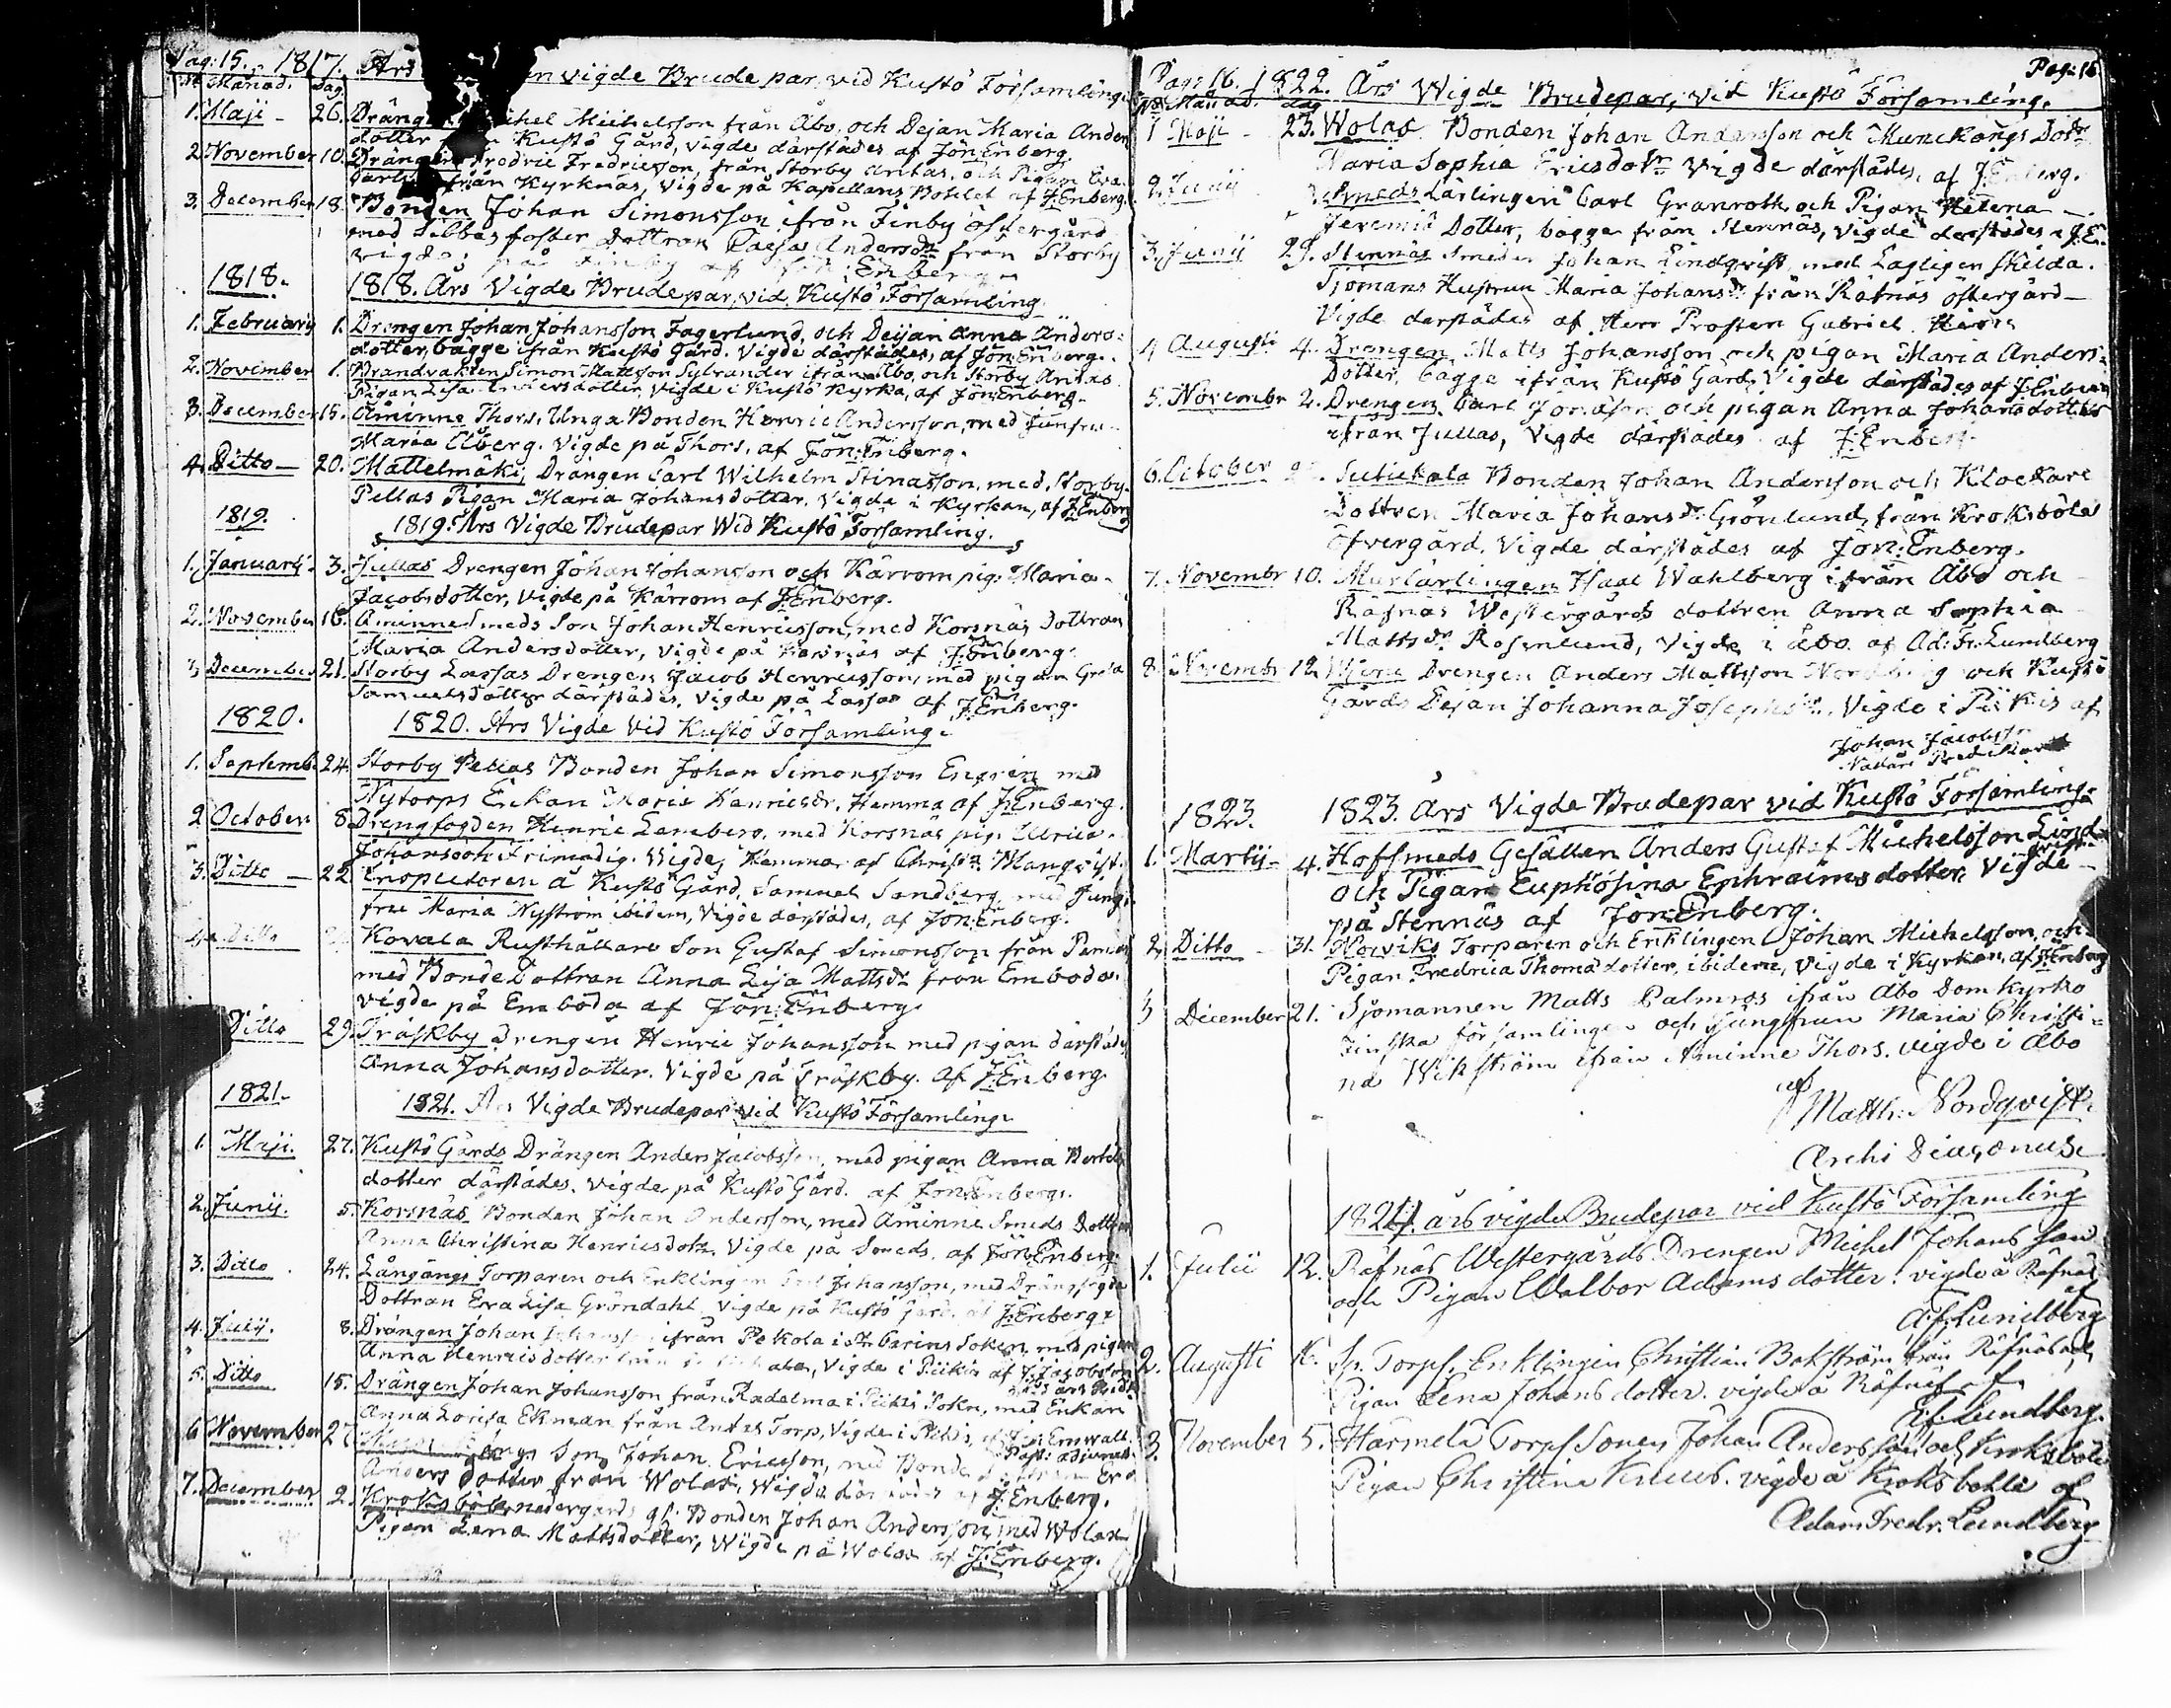 Pag: 15. 1817. Års vigde Brudepar, vid Kustö Församling.
No Månad. Dag.
1. Maji - 26. Drängen Michel Michelsson från Åbo, och Dejan Maria Anders
dotter från Kustö Gård, vigde därstädes af Jön: Enberg.
2. November 10. Drängen Fredric Fredricsson, från Storby Antas, och Pigan Eva
från Kyrknäs, Vigde på Kapellans Bohlet af J: Enberg.
3. December 18. Bonden Johan Simonsson ifrån Finby östergård
med Sibbas foster Dottran Caisa Andersdr från Storby
vigde på Finby af Jön: Enberg.
1818. 1818. Års Vigde Brudepar, vid Kustö Församling
1. February 1. Drengen Johan Johansson Fagerlund, och Deijan Anna Anders-
dotter, bägge ifrån Kustö Gård. Vigde därstädes, af Jön: Enberg.
2. November 1. Brandvakten Simon Mattsson Sylvander ifrån Åbo, och Storby Antas
Pigan Lisa Andersdotter, vigde i Kustö Kyrka, af Jön: Enberg.
3. December 15. Åminne Thors, Unga Bonden Henric Andersson, med Junfru
Maria Alberg. Vigde på Thors, af Jön: Enberg.
4. Ditto - 20. Mattelmäki, Drängen Carl Wilhelm Stinasson, med Storby
Pellas Pigan Maria Johansdotter. Vigde i Kyrkan, af J: Enberg
1819. 1819. Års Vigde Brudepar Wid Kustö Församling.
1. Januarij. 3. Jullas Drengen Johan Johansson och Kärrom pig: Maria
Jacobsdotter, Vigde på Kärrom af J: Enberg.
2. November 16. Åminne Smeds Son Johan Henricsson, med Korsnäs Dottran
Maria Andersdotter, vigde på Korsnäs af J: Enberg.
3. December 21. Storby Lassas Drengen Jacob Henricsson, med pigan Greta
Samuelsdotter därstädes, Vigde på Lassas af J: Enberg.
1820. 1820. Års Vigde Vid Kustö Församling.
1. Septemb. 24. Storby Pellas Bonden Johan Simonsson Engren med
Nytorps Enkan Maria Henricsdr. Hemma af J: Enberg.
2. October 8. Drengfogden Henric Lensberg, med Korsnäs pig: Ulrica
Johansdotr Frimodig. Vigde, Hemma af Christn Manqvist.
3. Ditto - 22. Inspectoren å Kustö Gård, Samuel Sandberg, med Jung-
fru Maria Nyström ibidem, Vigde därstädes, af Jön: Enberg.
4. Ditto Kovala Rusthållare Son Gustaf Simonsson från Pemar
med Bonde Dottran Anna Lisa Mattsdr från Emboda.
vigde på Emboda af Jön: Enberg.
Ditto 29. Träskby Drengen Henric Johansson med pigan därstädes
Anna Johansdotter. Vigde på Träskby. af J: Enberg.
1821. 1821. Års Vigde Brudepar vid Kustö Församling.
1. Maji. 27. Kustö Gårds Drängen Anders Jacobsson, med pigan Anna Bertils
dotter därstädes. Vigde på Kustö Gård. af Jön: Enberg.
2. Junij. 5. Korsnäs Bonden Johan Andersson, med Åminne Smeds Dottran
Anna Christina Henricsdotr. Vigde på Smeds. af Jön: Enberg.
3. Ditto. 24. Långängs Torparen och Enklingen Johansson, med Drängfogde
Dottran Eva Lisa Gröndahl. Vigde på Kustö Gård. af J: Enberg.
4. Julij. 8. Drängen Johan Johansson ifrån Pekola i St: Carins Soken, med pigan
Anna Henricsdotter, Vigde i Piikis af J: Jacobsson
5. Ditto 15. Drängen Johan Johansson från Radelma i Piikis Sokn, med Enkan
Anna Lovisa Ekman från Antas Torp, Vigde i Piikis, Ernwall
Past: adjunct.
6. November 27. Son Johan Ericsson, med Bonde Dottran Eva
Anders dotter från Wolax, Wigde därstädes af J: Enberg.
7. December 2. Kroksböle nedergårds gl. Bonden Johan Andersson, med Wolax
Pigan Lena Mattsdotter, Wigde på Wolax af J: Enberg.
Pag: 16. 1822. Års Wigde Brudepar, Vid Kustö Församling. Pag: 16
No Månad. dag
1 Maji - 23. Wolax Bonden Johan Andersson och Munckängs Dotr
Maria Sophia Ericsdotr Vigde därstädes, af J: Enberg.
2. Junij Smeds Lärlingen Carl Granroth, och Pigan Helena
Jeremiæ Dotter, bägge från Stennäs, Vigde därstädes af J: E.
3. Junij 29. Stennäs Smeden Johan Lindqvist, med Lagligen skilda
Sjömans Hustrun Maria Johansdr från Räfnäs östergård
Vigde därstädes af Herr Prosten Gabriel
4 Augusti 4. Drengen Matts Johansson och pigan Maria Anders-
Dotter, bägge ifrån Kustö Gård, Vigde därstädes af J: Enberg
5. Novembr 2. Drengen Carl Jonasson och pigan Anna Johansdotter
ifrån Jullas, Vigde därstädes af J: Enberg.
6. October Bonden Johan Andersson och Klockare
Dottren Maria Johansdr Grönlund, från Kroksböle
Öfvergård. Vigde därstädes af Jön: Enberg.
7. Novembr 10. Murlärlingen Isaac Wahlberg ifrån Åbo och
Räfnäs Westergårds dottren Anna Sophia
Mattsdr Rosenlund, Vigde i Åbo af Ad: Fr: Lundberg
8. Novembr 12. Drengen Anders Mattsson Nordberg och Kustö
Gårds Dejan Johanna Josephsdr. Vigde i Piikis af
Johan Jacobsson
1823. 1823. Års Vigde Brudepar vid Kustö Församling.
1. Martij - 4. Hofsmeds Gesällen Anders Gustaf Michelsson Lind-
qvist
och Pigan Euphrosina Ephraims dotter. Vigde
på Stennäs af Jön: Enberg.
2. Ditto - 31. Norviks Torparen och Enklingen Johan Michelsson, och
Pigan Fredrica Thomædotter, ibidem, Vigde i Kyrkan, af J: Enberg
3 December 21. Sjömannen Matts Palmros ifrån Åbo Domkyrko
Finska församlingen och Jungfrun Maria Christi-
na Wikström ifrån Åminne Thors. vigde i Åbo
af
Matth: Nordqvist.
Archi Diaconus.
1824. års vigde Brudepar vid Kustö Församling
1. Julii 12. Räfnäs Westergårds Drengen Michel Johans son
och Pigan Walbor Adams dotter. vigde å Räfnäs
af
A.f. Lundberg
2. Augusti 16. Torps. Enklingen Christian Bokström från Räfnäs och
Pigan Lena Johans dotter. vigde å Räfnäs af
A.f. Lundberg.
3. November 5. Harmela Torps Sonen Johan Anders son och Kroksböle
Pigan Christina vigde å Kroksbohle af
Adam Fredr. Lundberg